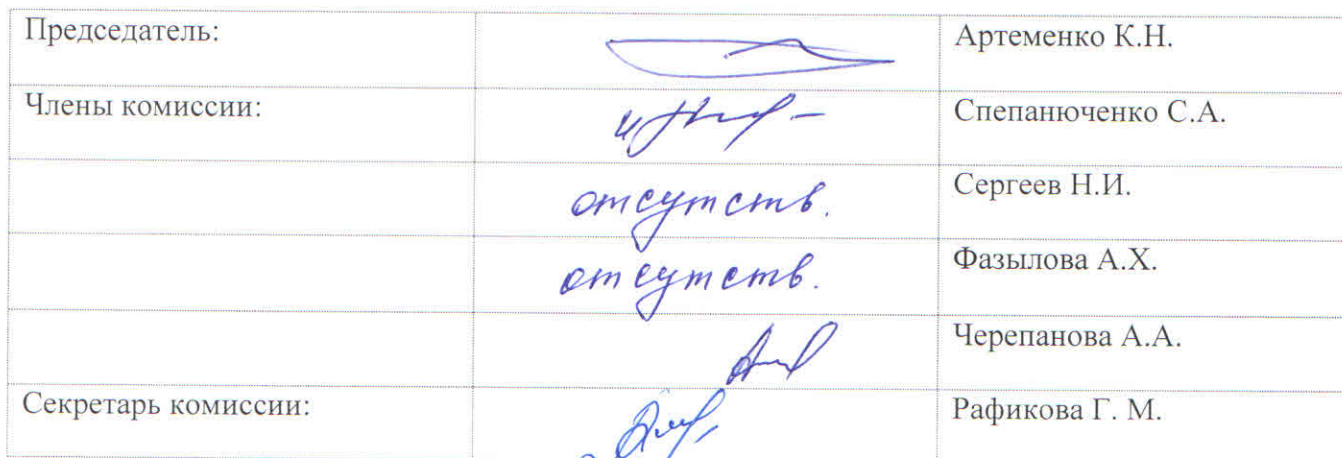 Председатель: Артеменко К.Н.
Члены комиссии: Спепанюченко С.А.
отсутств. Сергеев Н.И.
отсутств. Фазылова А.Х.
Черепанова А.А.
Секретарь комиссии: Рафикова Г. М.